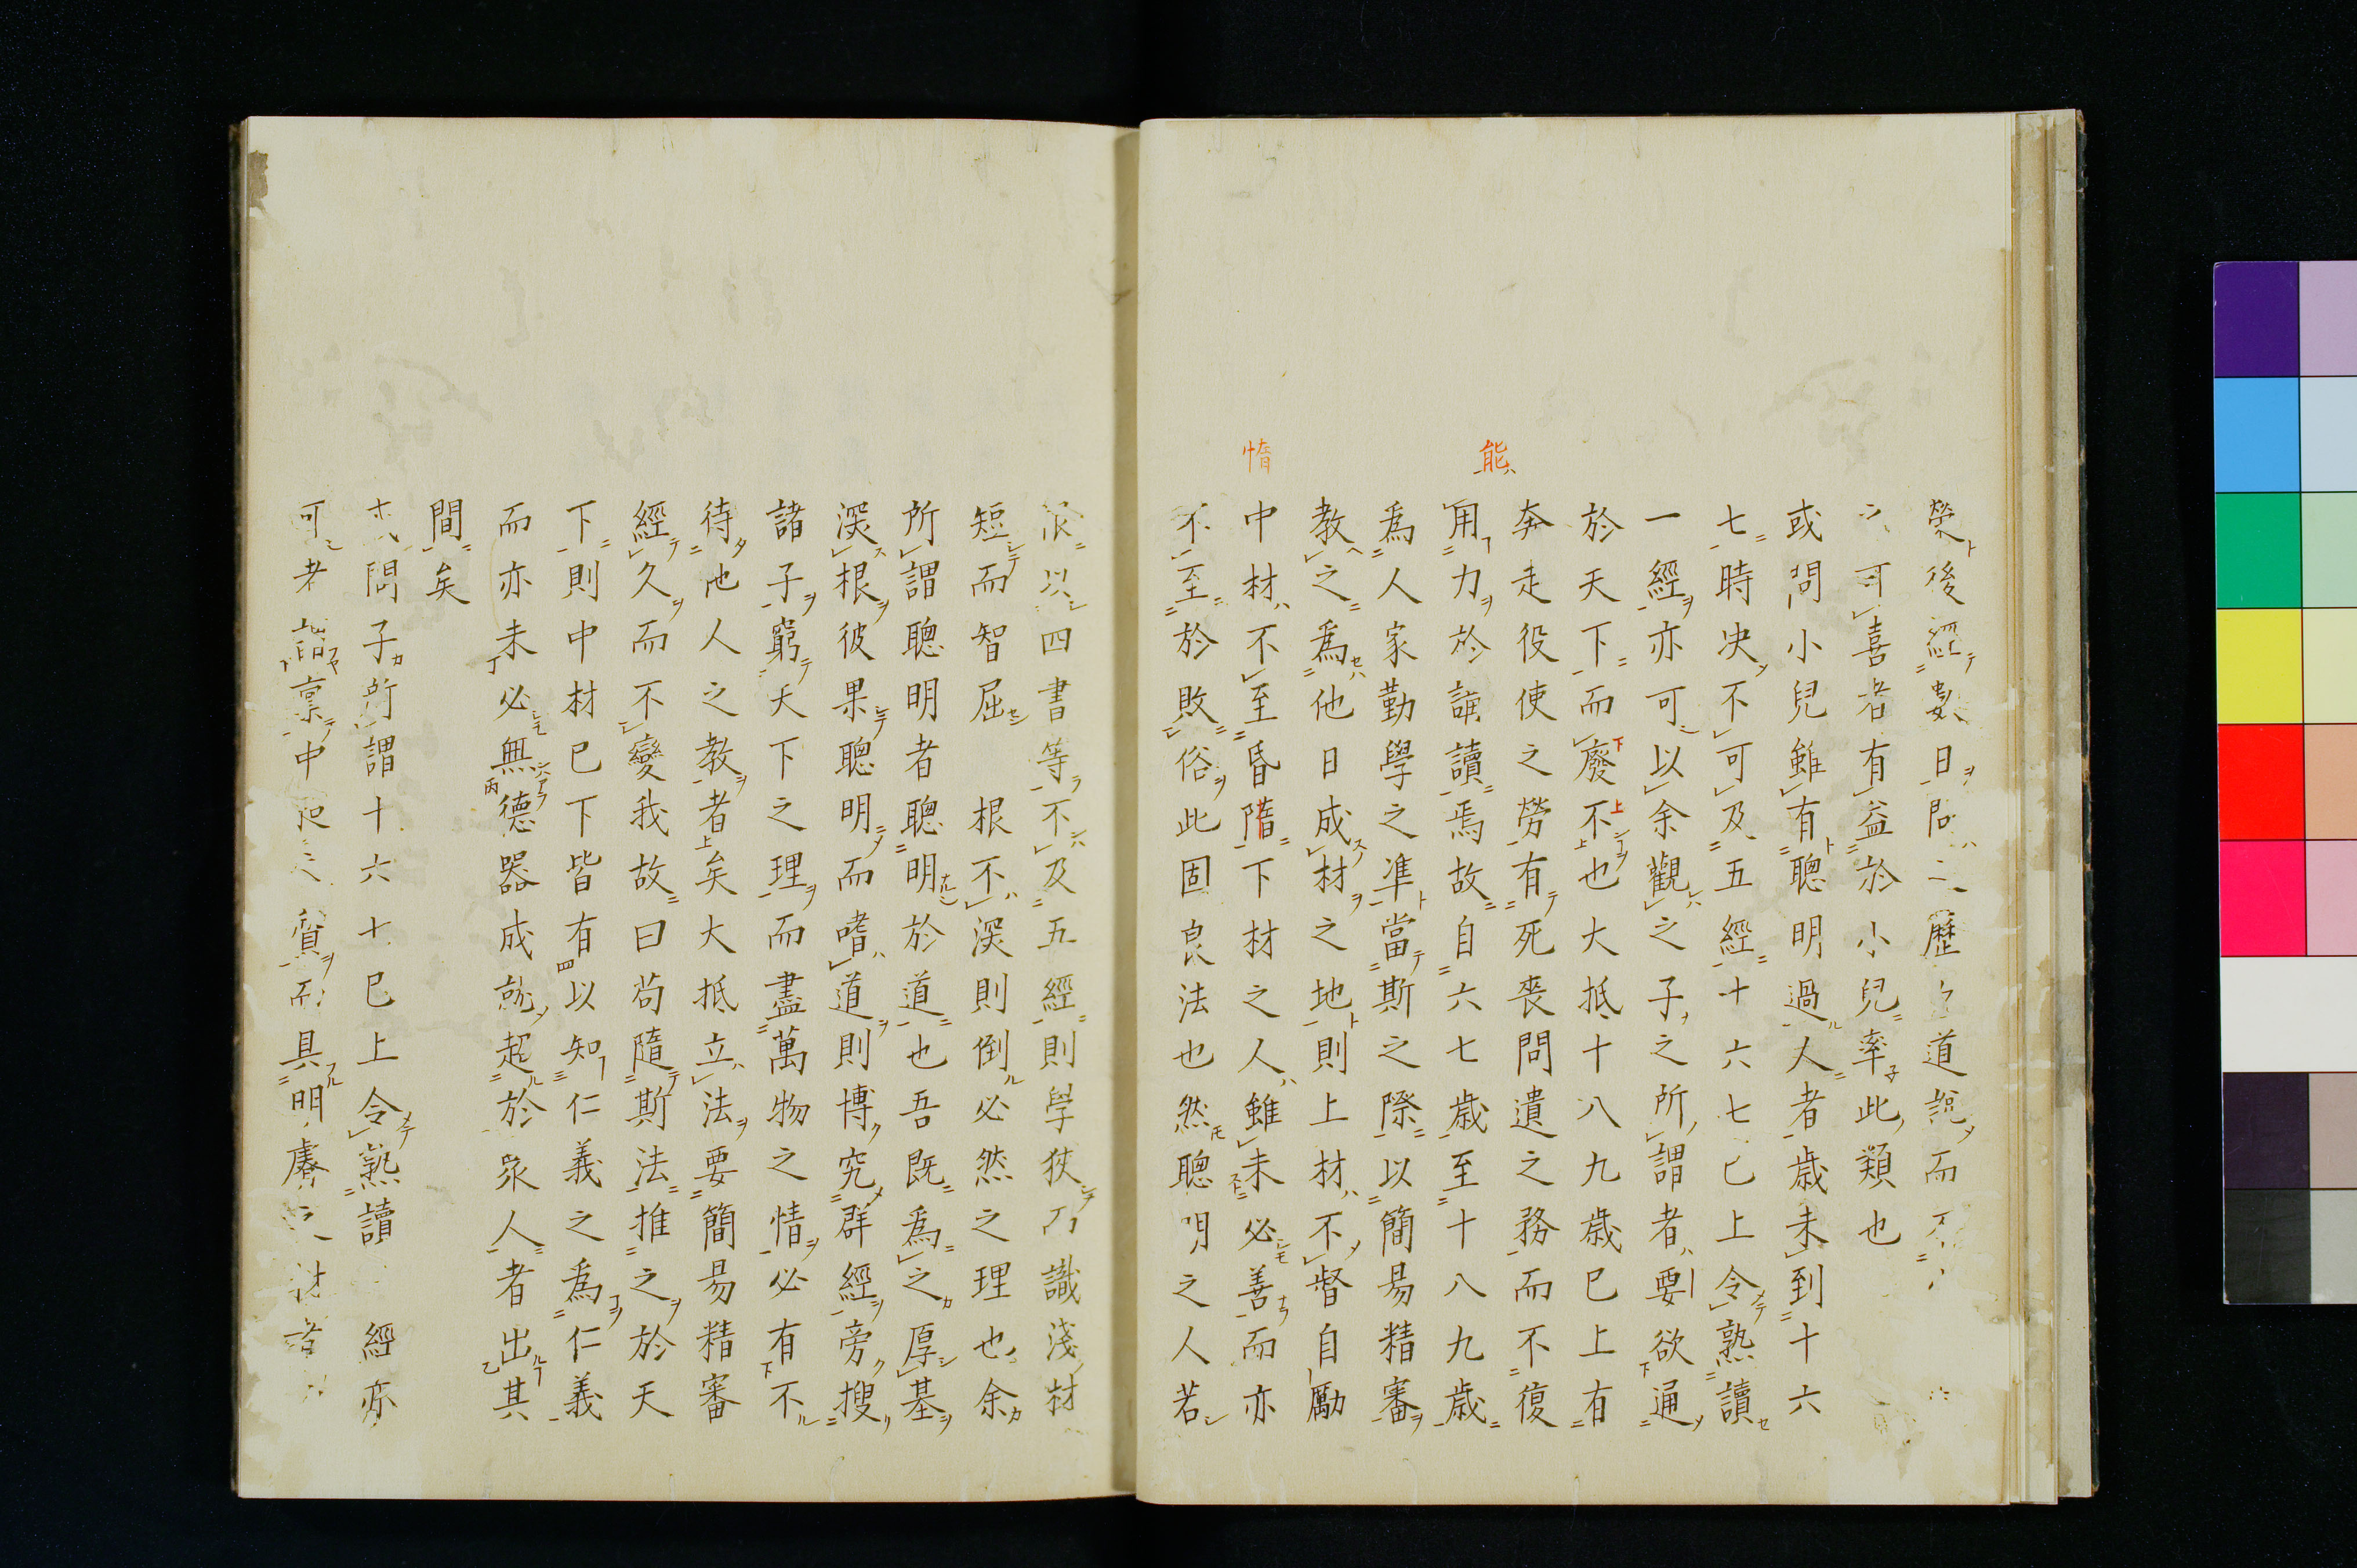 後經數日問歷道說而
可喜者有益於小兒率此類也
或問小兒雖有聰明過人者歳未到十六
七時决不可及五經十六七已上令熟讀
一經亦可以余觀之子之所謂者要欲通
於天下而廢不也大抵十八九歳已上有
奔走役使之勞有死喪問遺之務而不復
能
用力於誦讀焉故自六七歳至十八九歳
為人家勤學之準當斯之際以簡易精審
教之為他日成材之地則上材不督自勵
惰
中材不至昏㥩下材之人雖未必善而亦
不至於敗俗此固良法也然聰明之人若
以四書等不及五經則學狹而識淺材
短而智屈根不深則倒必然之理也余
所謂聰明者聰明於道也吾既為之厚基
深根彼果聰明而嗜道則博究群經旁搜
諸子窮天下之理而盡萬物之情必有不
待他人之教者矣大抵立法要簡易精審
經久而不變我故曰苟隨斯法推之於天
下則中材已下皆有以知仁義之為仁義
而亦未必無德器成就超於衆人者出其
間矣
或問子所謂十六七已上令熟讀經亦
可者禀中之質而具明之